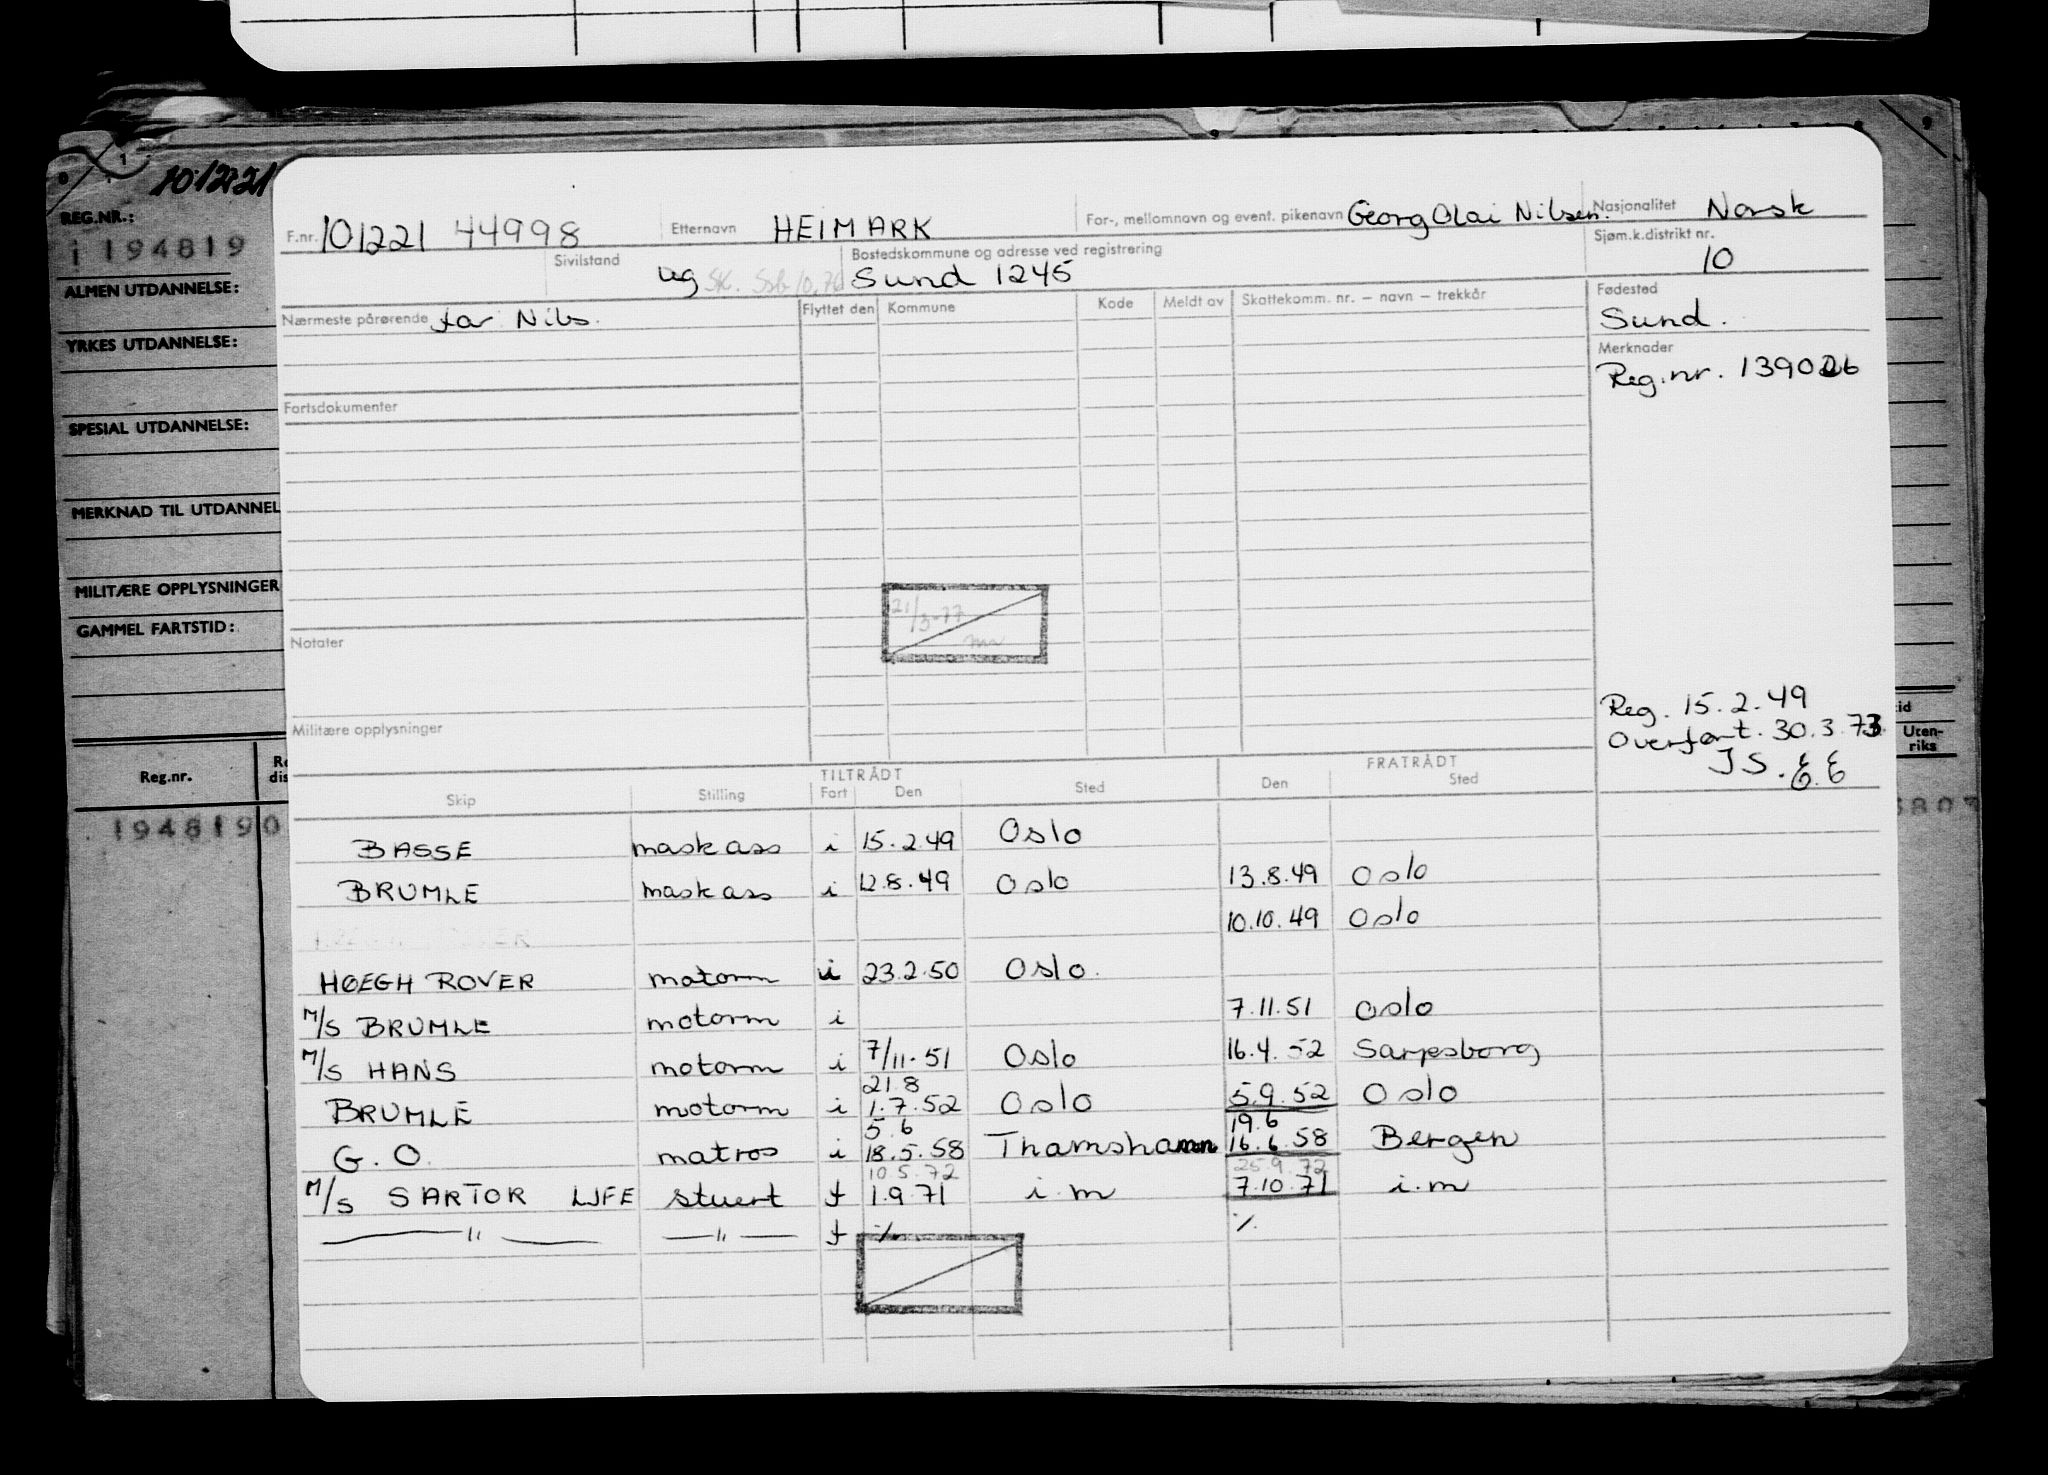 10.12.21
REG.NR.:
i 194819
ALMEN UTDANNELSE:
YRKES UTDANNELSE:
SPESIAL UTDANNELSE:
MERKNAD TIL UTDANNEL
MILITÆRE OPPLYSNINGER
GAMMEL FARTSTID:
Reg.nr.
1948190
F.nr. 101221 44998 Etternavn HEIMARK For-, mellomnavn og event. pikenavn Georg Olai Nilsen. Nasjonalitet Norsk
Sivilstand ug Bostedskommune og adresse ved registrering Sund 1245 Sjøm.k.distrikt nr. 10
Nærmeste pårørende far Nils. Flyttet den Kommune Kode Meldt av Skattekomm. nr. – navn – trekkår Fødested Sund.
Merknader
Reg.nr. 139026
Fortsdokumenter
21/3-77
Notater
Reg. 15.2.49
Overført. 30.3.73
JS. EE
Militære opplysninger
TILTRÅDT FRATRÅDT
Skip Stilling Fart Den Sted Den Sted
BASSE mask ass i 15.2.49 Oslo
BRUMLE mask ass i 12.8.49 Oslo 13.8.49 Oslo
10.10.49 Oslo
HØEGH ROVER motorm u 23.2.50 Oslo.
M/S BRUMLE motorm i 7.11.51 Oslo
M/S HANS motorm i 7/11.51 Oslo 16.4.52 Sarpsborg
21.8
BRUMLE motorm i 1.7.52 Oslo 5.9.52 Oslo
5.6 19.6
G.O. matros i 18.5.58 Thamshamn 16.6.58 Bergen
10.5.72 25.9.72
M/S SARTOR LJFE stuert f 1.9.71 i.m 7.10.71 i.m
—"— —"— f ./. ./.
Uten-
riks